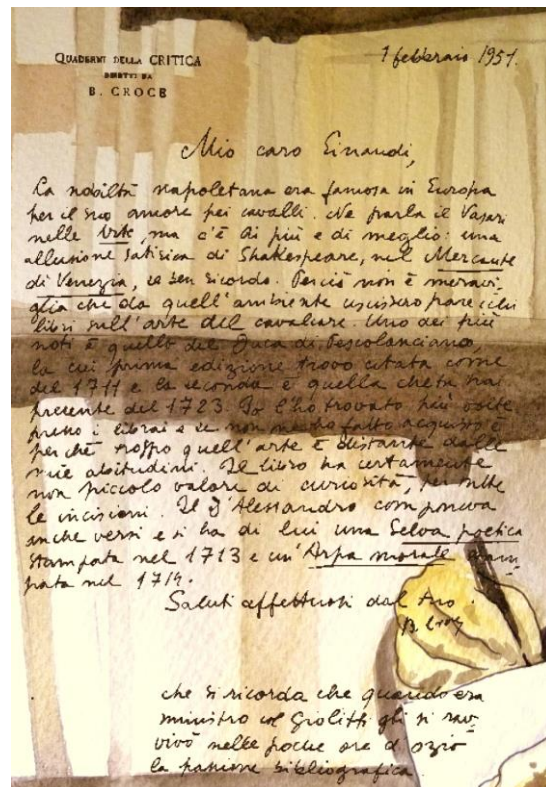 QUADERNI DELLA CRITICA
DIRETTI DA
B. CROCE
1 febbraio 1951.
Mio caro Einaudi,
La nobiltà napoletana era famosa in Europa
per il suo amore pei cavalli. Ne parla il Vasari
nelle Vite, ma c'è di più e di meglio: una
allusione satirica di Shakespeare, nel Mercante
di Venezia, se ben ricordo. Perciò non è meravi
glia che da quell'ambiente uscissero parecchi
libri sull'arte del cavalcare. Uno dei più
noti è quello del Duca di Pescolanciano,
la cui prima edizione trovo citata come
del 1711 e la seconda è quella che tu hai
presente del 1723. Io l'ho trovato più volte
presso i librai e se non ne ho fatto acquisto è
perché troppo quell'arte è distante dalle
mie abitudini. Il libro ha certamente
non piccolo valore di curiosità, per tutte
le incisioni. Il D'Alessandro componeva
anche versi e si ha di lui una Selva poetica
stampata nel 1713 e un'Arpa morale stam
pata nel 1714.
Saluti affettuosi dal tuo
B. Croce
che si ricorda che quando era
ministro col Giolitti gli si rav
vivò nelle poche ore d'ozio
la passione bibliografica.